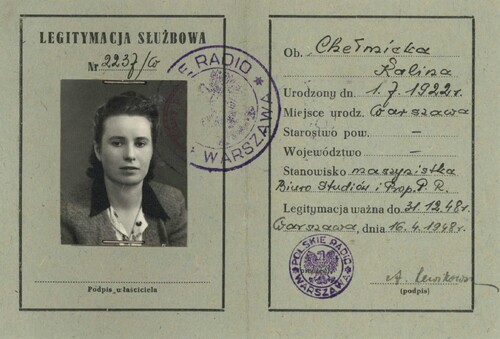 LEGITYMACJA SŁUŻBOWA
Nr 2237/W
E RADIO
* WARSZAWA *
Podpis właściciela
Ob. Chełmicka
Kalina
Urodzony dn. 1.7.1922 r.
Miejsce urodz. Warszawa
Starostwo pow. —
Województwo —
Stanowisko maszynistka
Biuro Studiów i Prop. P. R.
Legitymacja ważna do 31.12.48 r.
Warszawa, dnia 16.4.1948 r.
POLSKIE RADIO
* WARSZAWA *
(podpis)